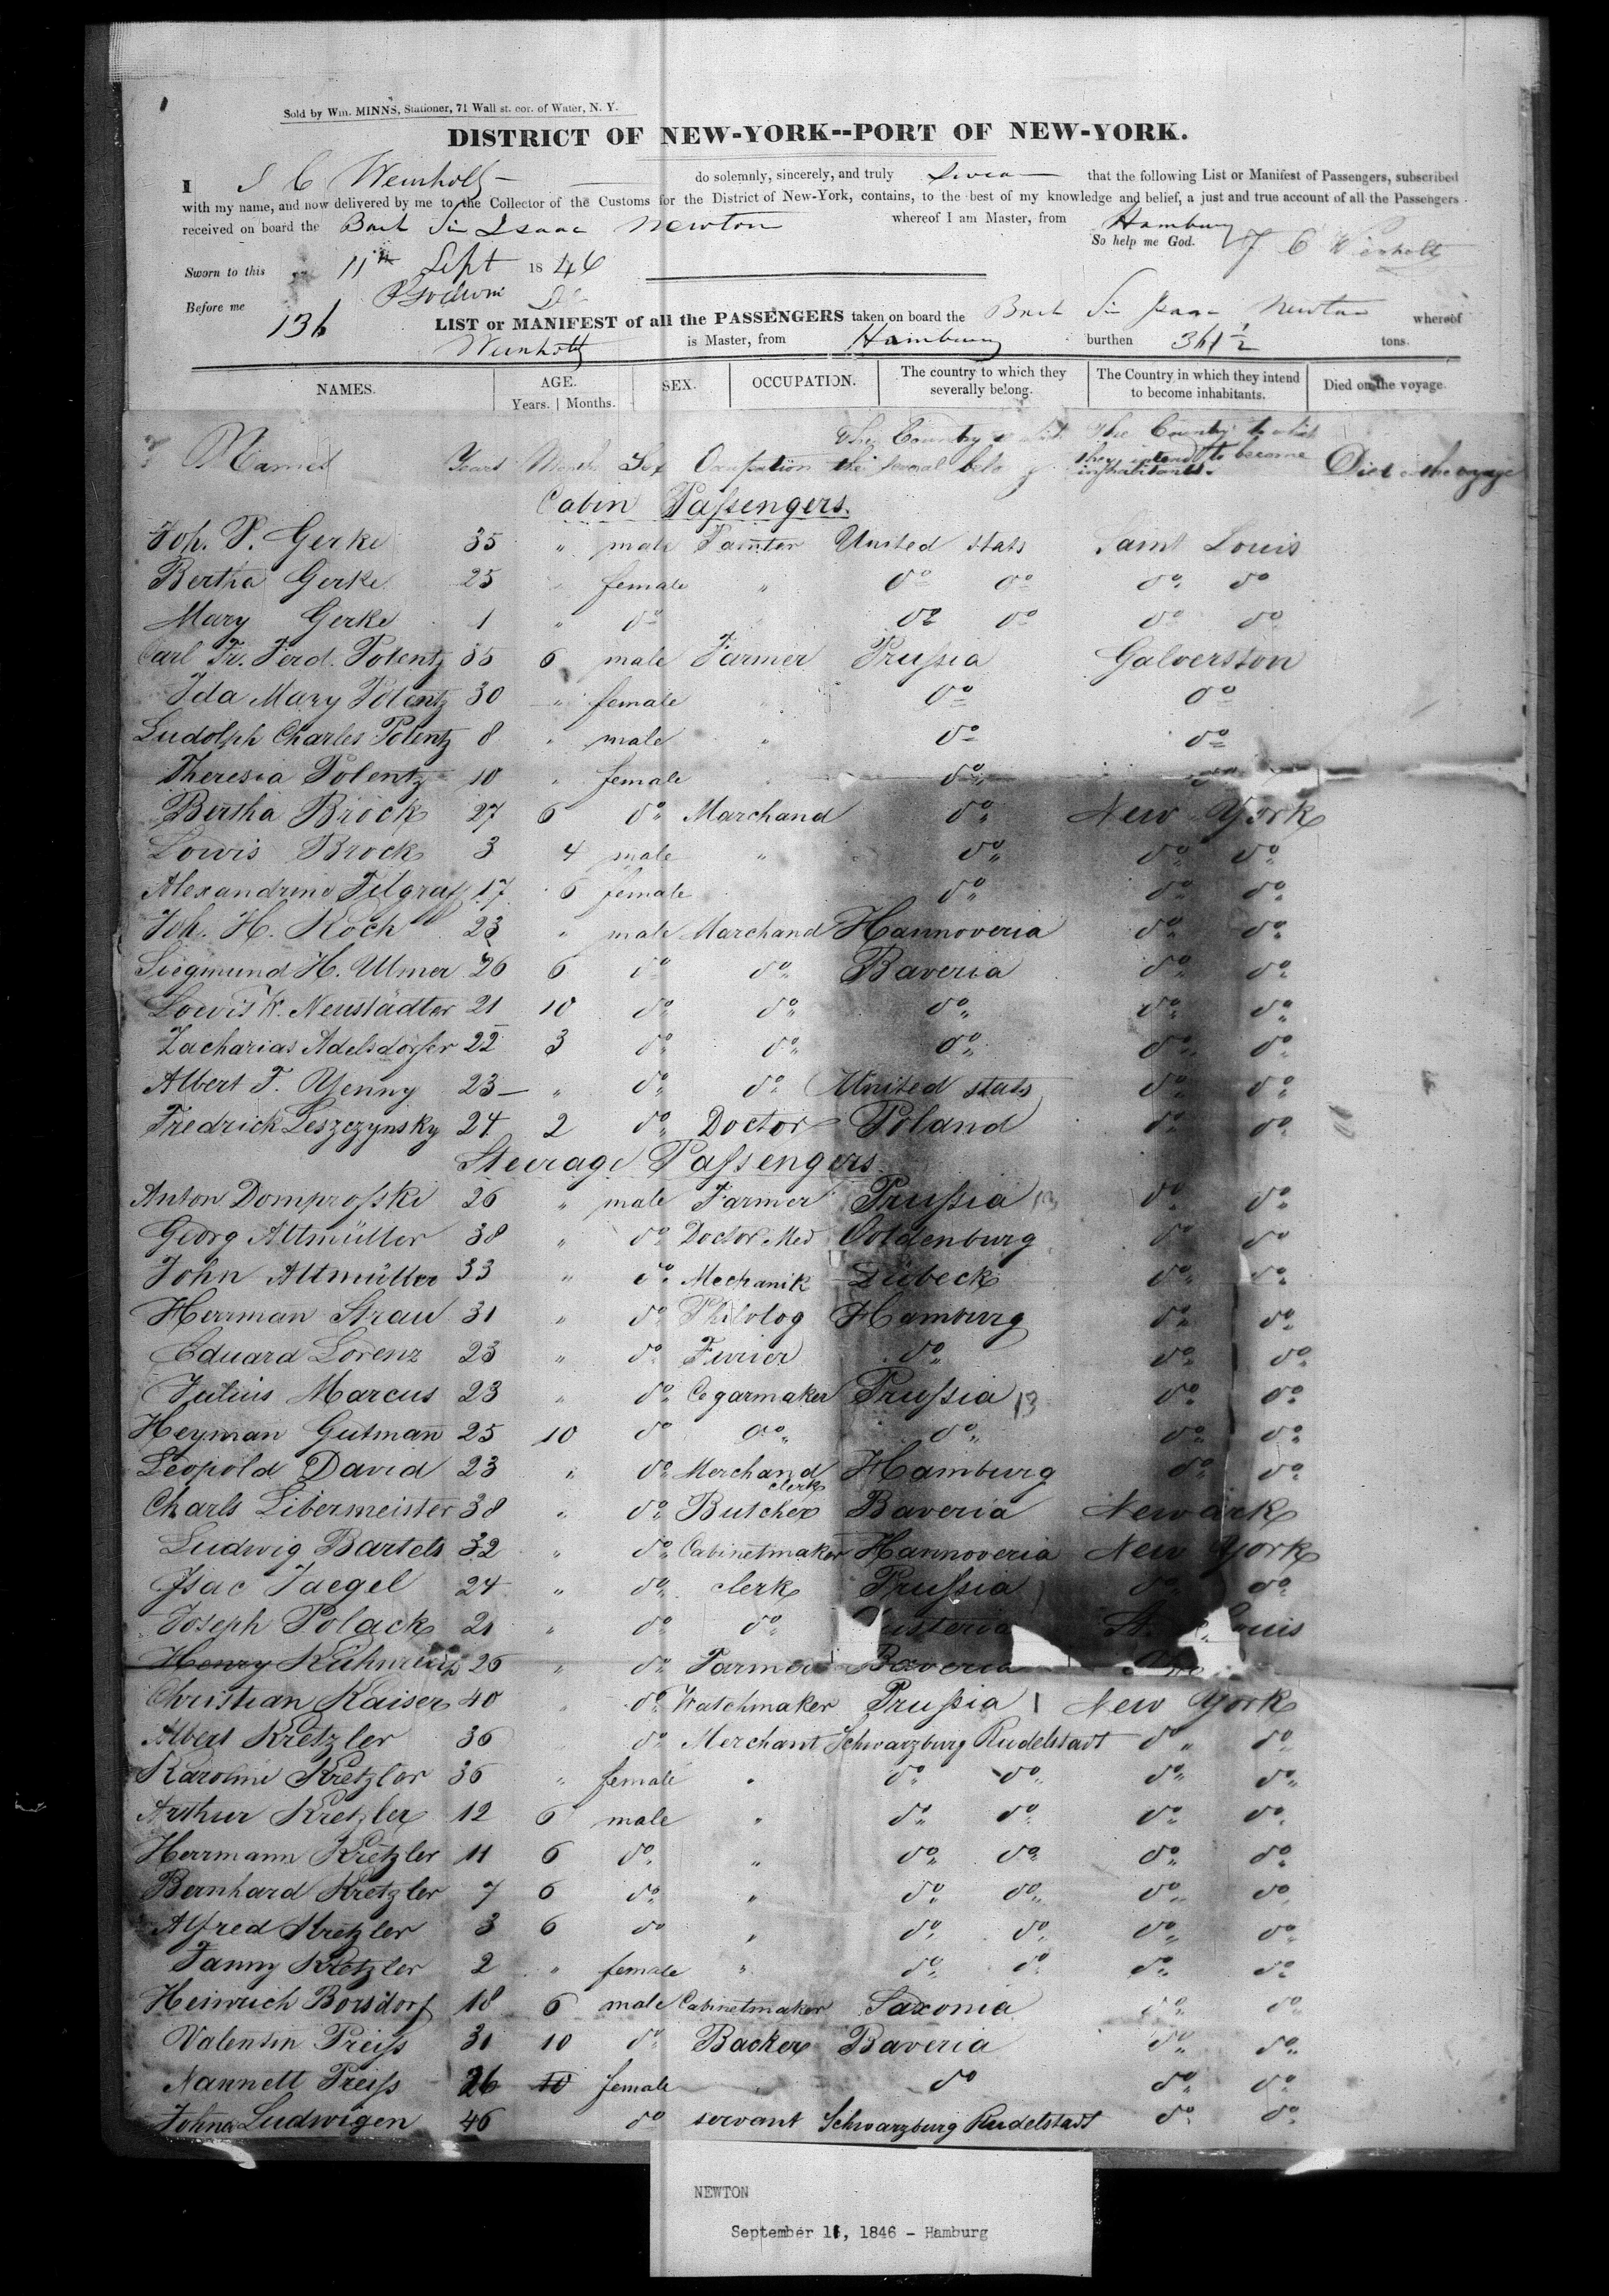 Sold by Wm. MINNS, Stationer, 71 Wall st. cor. of Water, N. Y.
DISTRICT OF NEW-YORK--PORT OF NEW-YORK.
I J C Weinholtz do solemnly, sincerely, and truly swear that the following List or Manifest of Passengers, subscribed
with my name, and now delivered by me to the Collector of the Customs for the District of New-York, contains, to the best of my knowledge and belief, a just and true account of all the Passengers
received on board the Bark Sir Isaac Newton whereof I am Master, from Hamburg
So help me God. J C Weinholtz
Sworn to this 11th Sept 1846
Before me
136
LIST or MANIFEST of all the PASSENGERS taken on board the Bark Sir Isaac Newton whereof
Weinholtz is Master, from Hamburg burthen 361 1/2 tons.
NAMES. AGE. SEX. OCCUPATION. The country to which they severally belong. The Country in which they intend to become inhabitants. Died on the voyage.
Years. | Months.
Names Years Months Sex Occupation The Country to which the several belong The Country to which they intend to become inhabitants. Died on the voyage
Cabin Paſsengers.
Joh. P. Gerke 35 " male Painter United stats Saint Louis
Bertha Gerke 25 " female " do do do do
Mary Gerke 1 " do do do do do
Carl Fr. Ferd. Polentz 35 6 male Farmer Pruſsia Galverston
Ida Mary Polentz 30 " female " do do
Ludolph Charles Polentz 8 " male " do do
Theresia Polentz 10 " female do do
Bertha Brock 27 6 do Marchand do New York
Lowis Brock 3 4 male " do do do
Alexandrine 17 6 female do do do
Joh. H. Koch 23 " male Marchand Hannoveria do do
Siegmund H. Ulmer 26 6 do do Baveria do do
Lowis W. Neustädter 21 10 do do do do do
Zacharias Adelsdorfer 22 3 do do do do do
Albert F. Yenny 23 " do do United stats do do
Fredrick Leszczynsky 24 2 do Doctor Poland do do
Steerage Paſsengers
Anton Domproſski 26 " male Farmer Pruſsia 13 do do
Georg Altmüller 38 " do Doctor Med Ooldenburg do do
John Altmüller 33 " do Mechanik Lübeck do do
Herrman Strau 31 " do Philolog Hamburg do do
Eduard Lorenz 23 " do Furier do do do
Julius Marcus 23 " do Cegarmaker Pruſsia 13 do do
Heyman Gutman 25 10 do do do do do
Leopold David 23 " do Merchand clerk Hamburg do do
Charls Libermeister 38 " do Butcher Baveria Newark
Ludwig Bartels 32 " do Cabinetmaker Hannoveria New York
Isac Jaegel 24 " do clerk Pruſsia do do
Joseph Polack 21 " do do usteria St. Louis
Henry 26 " do Farmer Baveria
Christian Kaiser 40 " do Watchmaker Pruſsia New York
Albert Kretzler 36 do Merchant Schwarzburg Rudelstadt do do
Karoline Kretzler 36 " female " do do do do
Arthur Kretzler 12 6 male " do do do do
Herrmann Kretzler 11 6 do " do do do do
Bernhard Kretzler 7 6 do " do do do do
Alfred Kretzler 3 6 do " do do do do
Fanny Kretzler 2 " female " do do do do
Heinrich Borsdorf 18 6 male Cabinetmaker Saxonia do do
Valentin Preiſs 31 10 do Backer Baveria do do
Nannett Preiſs 26 10 female do do do
Johna Ludwigen 46 do servant Schwarzburg Rudelstadt do do
NEWTON
September 11, 1846 - Hamburg